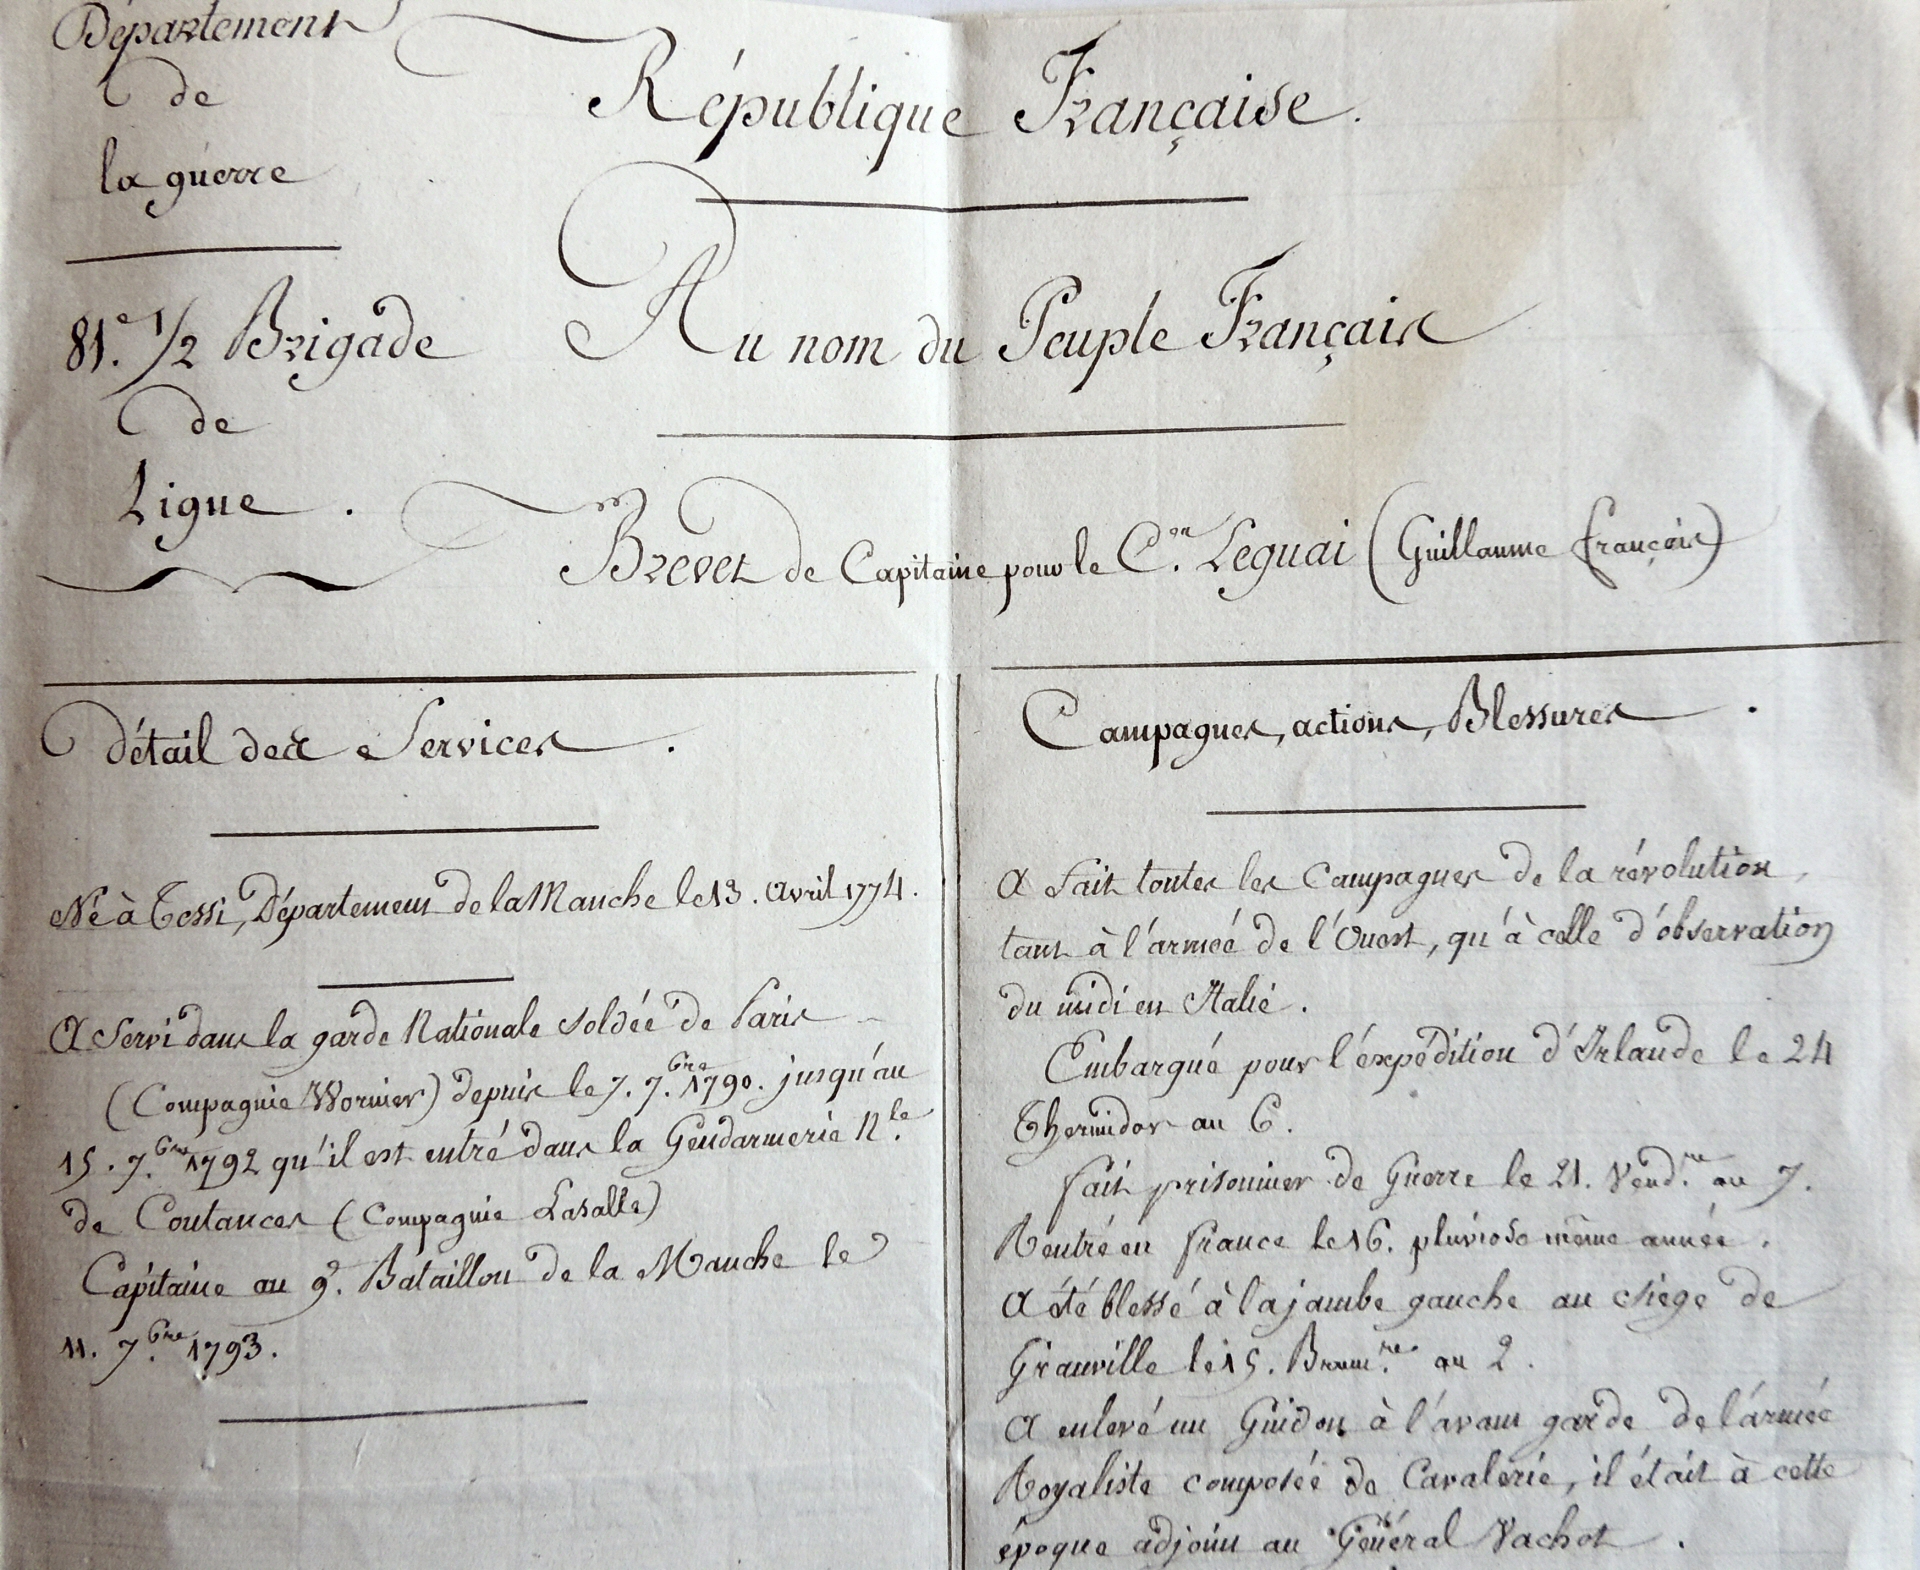 Département
de
la guerre
81.e 1/2 Brigade
de
Ligne.
République Française.
Au nom du Peuple Français
Brevet de Capitaine pour le C.en Leguai (Guillaume françois)
Détail des Services.
Né à Tessi, Département de la Manche le 13. avril 1774.
A Servi dans la garde Nationale soldée de Paris
(Compagnie Wormier) depuis le 7. 7.bre 1790. jusqu'au
15. 7.bre 1792 qu'il est entré dans la Gendarmerie N.le
de Coutances (Compagnie Lasalle)
Capitaine au 9.e Bataillon de la Manche le
11. 7.bre 1793.
Campagnes, actions, Blessures.
A fait toutes les Campagnes de la révolution,
tant à l'armeé de l'Ouest, qu'à celle d'observation
du midi en Italie.
Embarqué pour l'éxpédition d'Irlande le 24
Thermidor an 6.
fait prisonnier de Guerre le 21. Vend.re an 7.
Rentré en france le 16. pluviose même année.
A été blessé à la jambe gauche au siège de
Granville le 15. Brum.re an 2.
A enlevé un Guidon à l'avant garde de l'armée
Royaliste composée de Cavalerie, il était à cette
époque adjoint au Général Vachot.